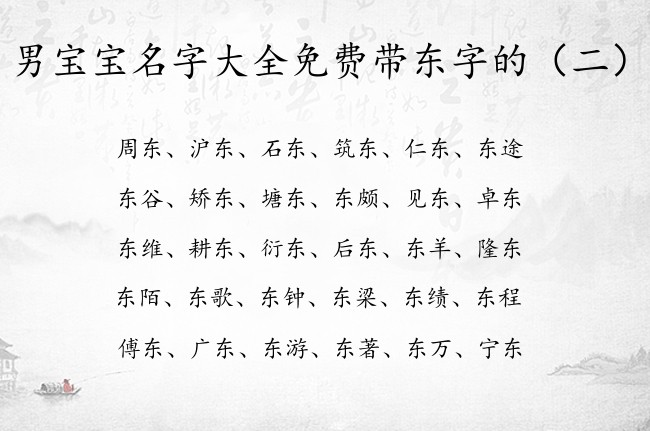 男宝宝名字大全免费带东字的（二）
周东、沪东、石东、筑东、仁东、东途
东谷、矫东、塘东、东颇、见东、卓东
东维、耕东、衍东、后东、东羊、隆东
东陌、东歌、东钟、东梁、东绩、东程
傅东、广东、东游、东著、东万、宁东